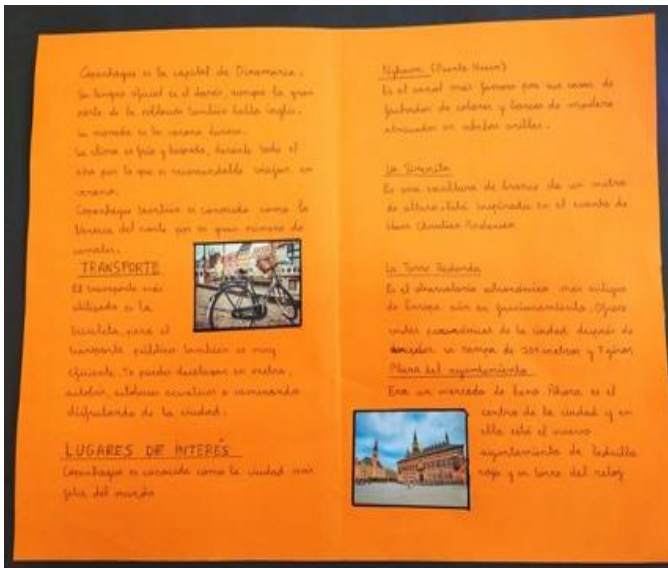 Copenhague es la capital de Dinamarca.
Su lengua oficial es el danés, aunque la gran
parte de la población también habla inglés.
Su moneda es la corona danesa.
Su clima es frío y húmedo, durante todo el
año por lo que es recomendable viajar en
verano.
Copenhague también es conocida como la
Venecia del norte por su gran número de
canales.
TRANSPORTE
El transporte más
utilizado es la
bicicleta, pero el
transporte público también es muy
eficiente. Te puedes desplazar en metro,
autobús, autobuses acuáticos o caminando
disfrutando de la ciudad.
LUGARES DE INTERÉS
Copenhague es conocida como la ciudad más
feliz del mundo
Nyhavn (Puerto Nuevo)
Es el canal más famoso por sus casas de
fachadas de colores y barcos de madera
atracados en ambas orillas.
La Sirenita
Es una escultura de bronce de un metro
de altura. Está inspirada en el cuento de
Hans Christian Andersen
La Torre Redonda
Es el observatorio astronómico más antiguo
de Europa aún en funcionamiento. Ofrece
vistas panorámicas de la ciudad después de
su rampa de metros y 7 giros
Plaza del ayuntamiento
Era un mercado de heno. Ahora es el
centro de la ciudad y en
ella está el nuevo
ayuntamiento de ladrillo
rojo y su torre del reloj